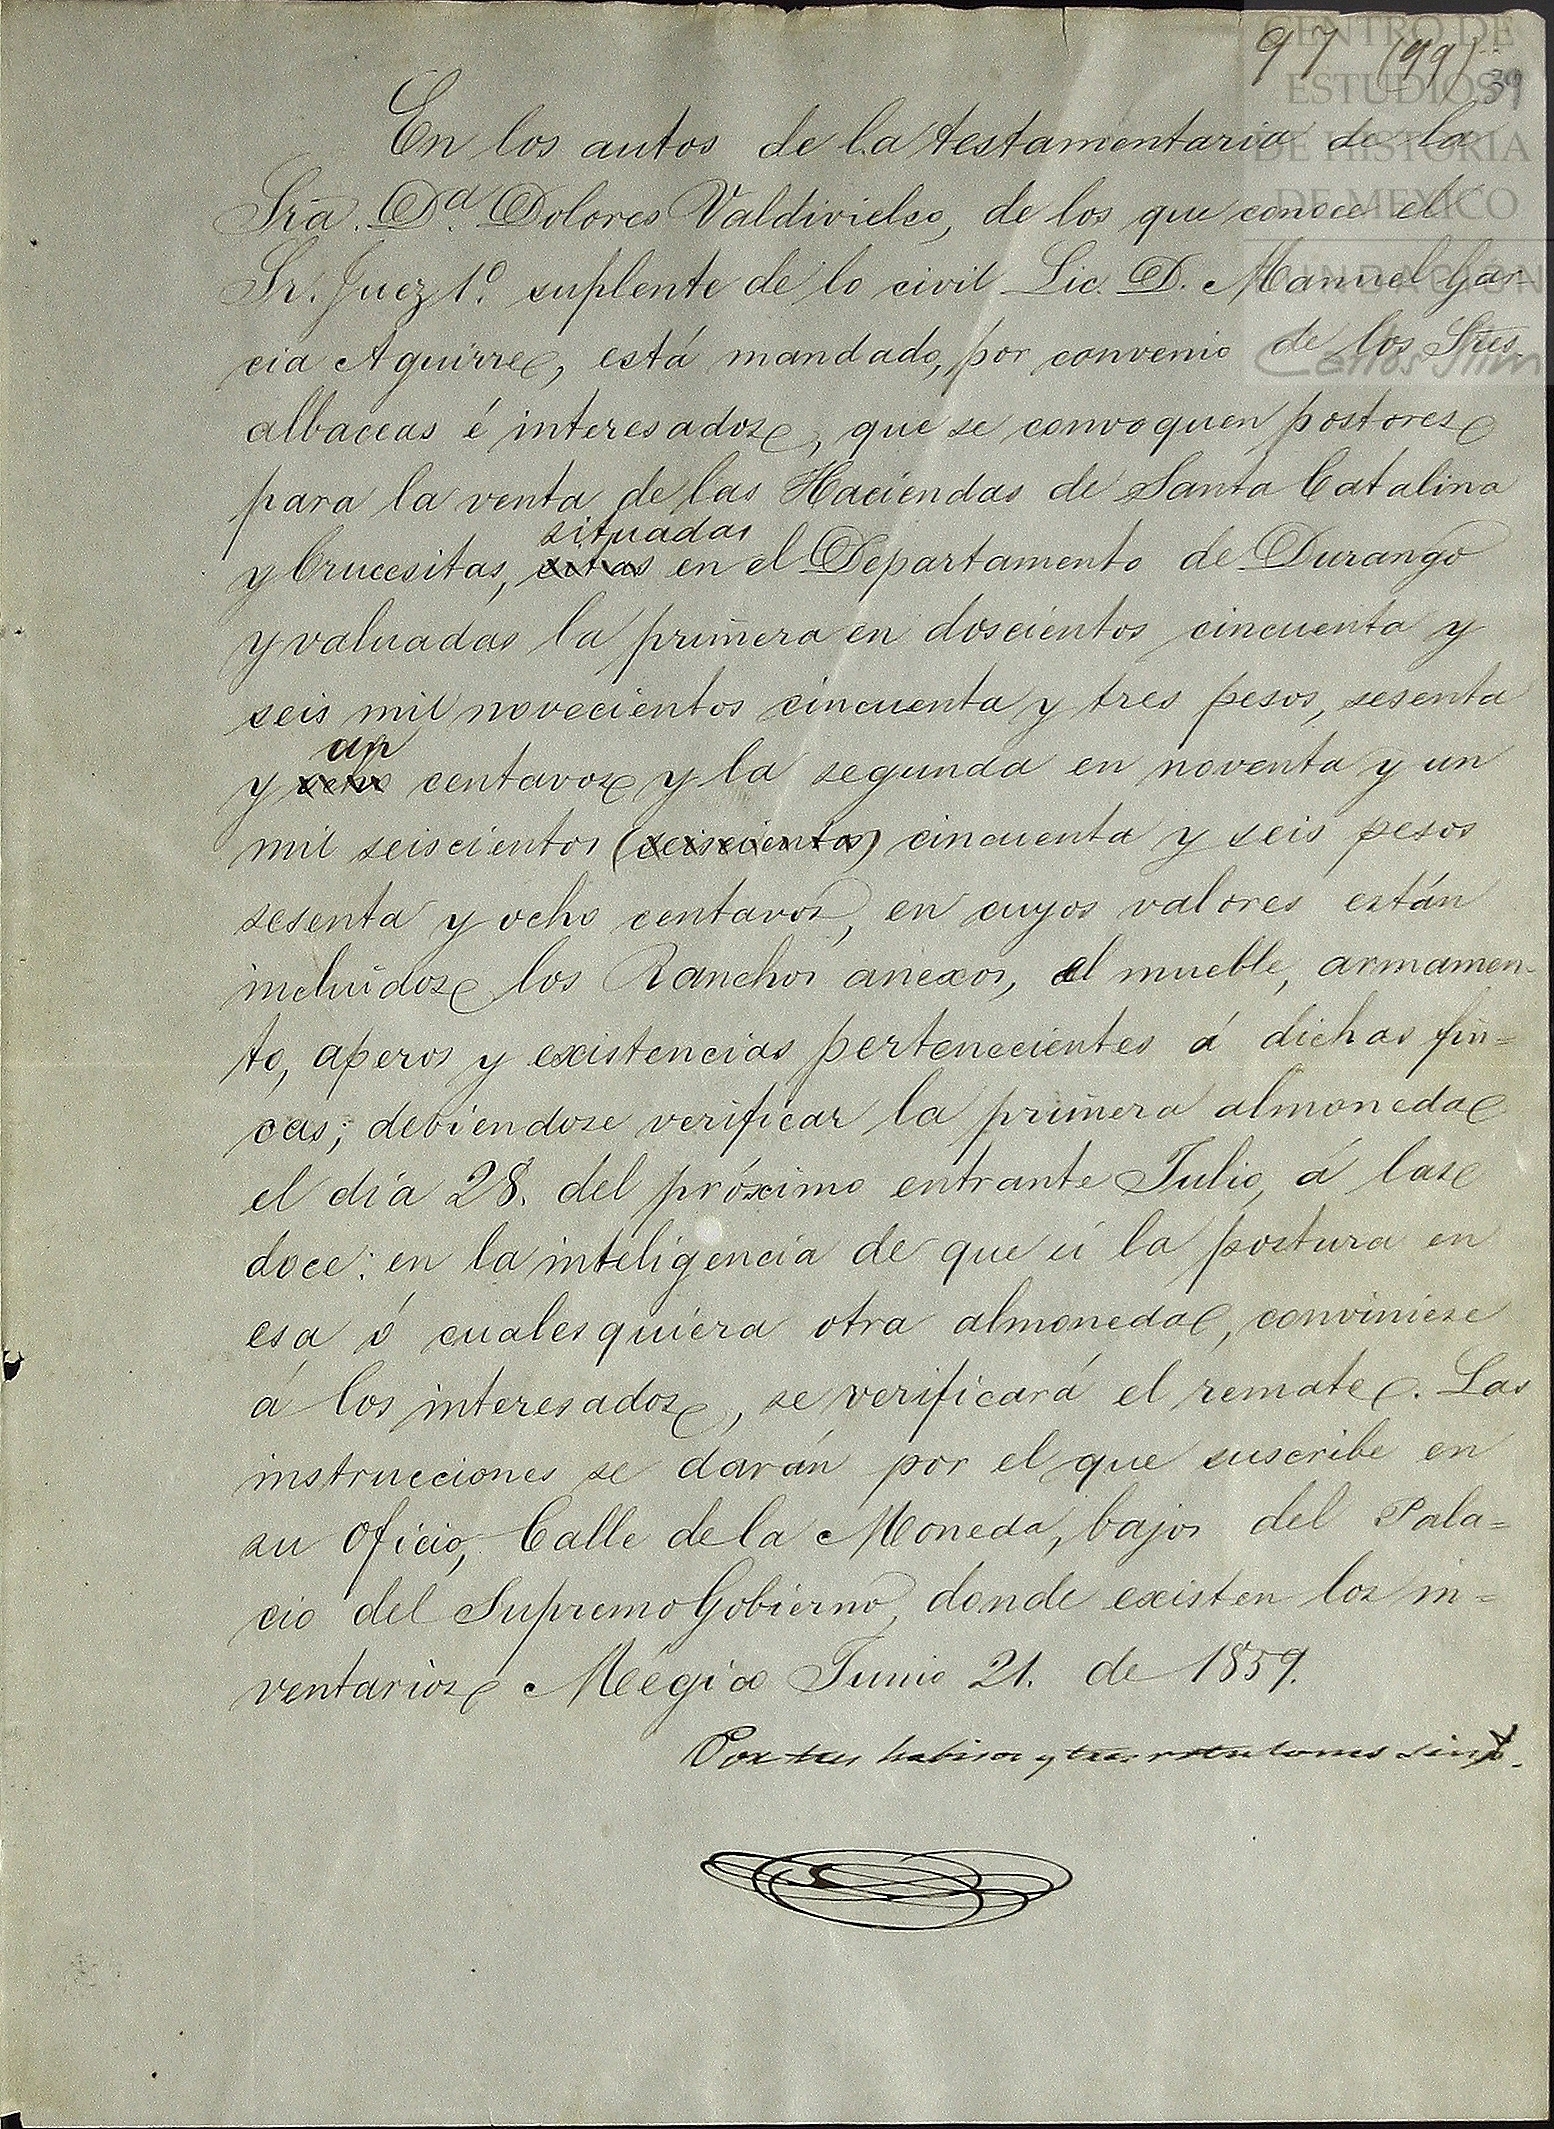 97 (99) 39
CENTRO DE
ESTUDIOS
DE HISTORIA
DE MEXICO
FUNDACION
Carlos Slim
En los autos de la testamentaria de la
Sra. Dª. Dolores Valdivielso, de los que conoce el
Sr. Juez 1º. suplente de lo civil Lic. D. Manuel Gar-
cia Aguirre, está mandado, por convenio de los Sres.
albaceas é interesados, que se convoquen postores
para la venta de las Haciendas de Santa Catalina
situadas
y Crucesitas, en el Departamento de Durango
y valuadas la primera en doscientos cincuenta y
seis mil novecientos cincuenta y tres pesos, sesenta
un
y ocho centavos y la segunda en noventa y un
mil seiscientos (seiscientos) cincuenta y seis pesos
sesenta y ocho centavos, en cuyos valores están
incluidos los Ranchos anexos, el mueble, armamen-
to, aperos y existencias pertenecientes á dichas fin=
cas; debiendose verificar la primera almoneda
el día 28. del próximo entrante Julio, á las
doce: en la inteligencia de que si la postura en
esa ó cualesquiera otra almoneda, conviniese
á los interesados, se verificará el remate. Las
instrucciones se darán por el que suscribe en
su Oficio, Calle de la Moneda, bajos del Pala=
cio del Supremo Gobierno, donde existen los in=
ventarios Mégico Junio 21. de 1859.